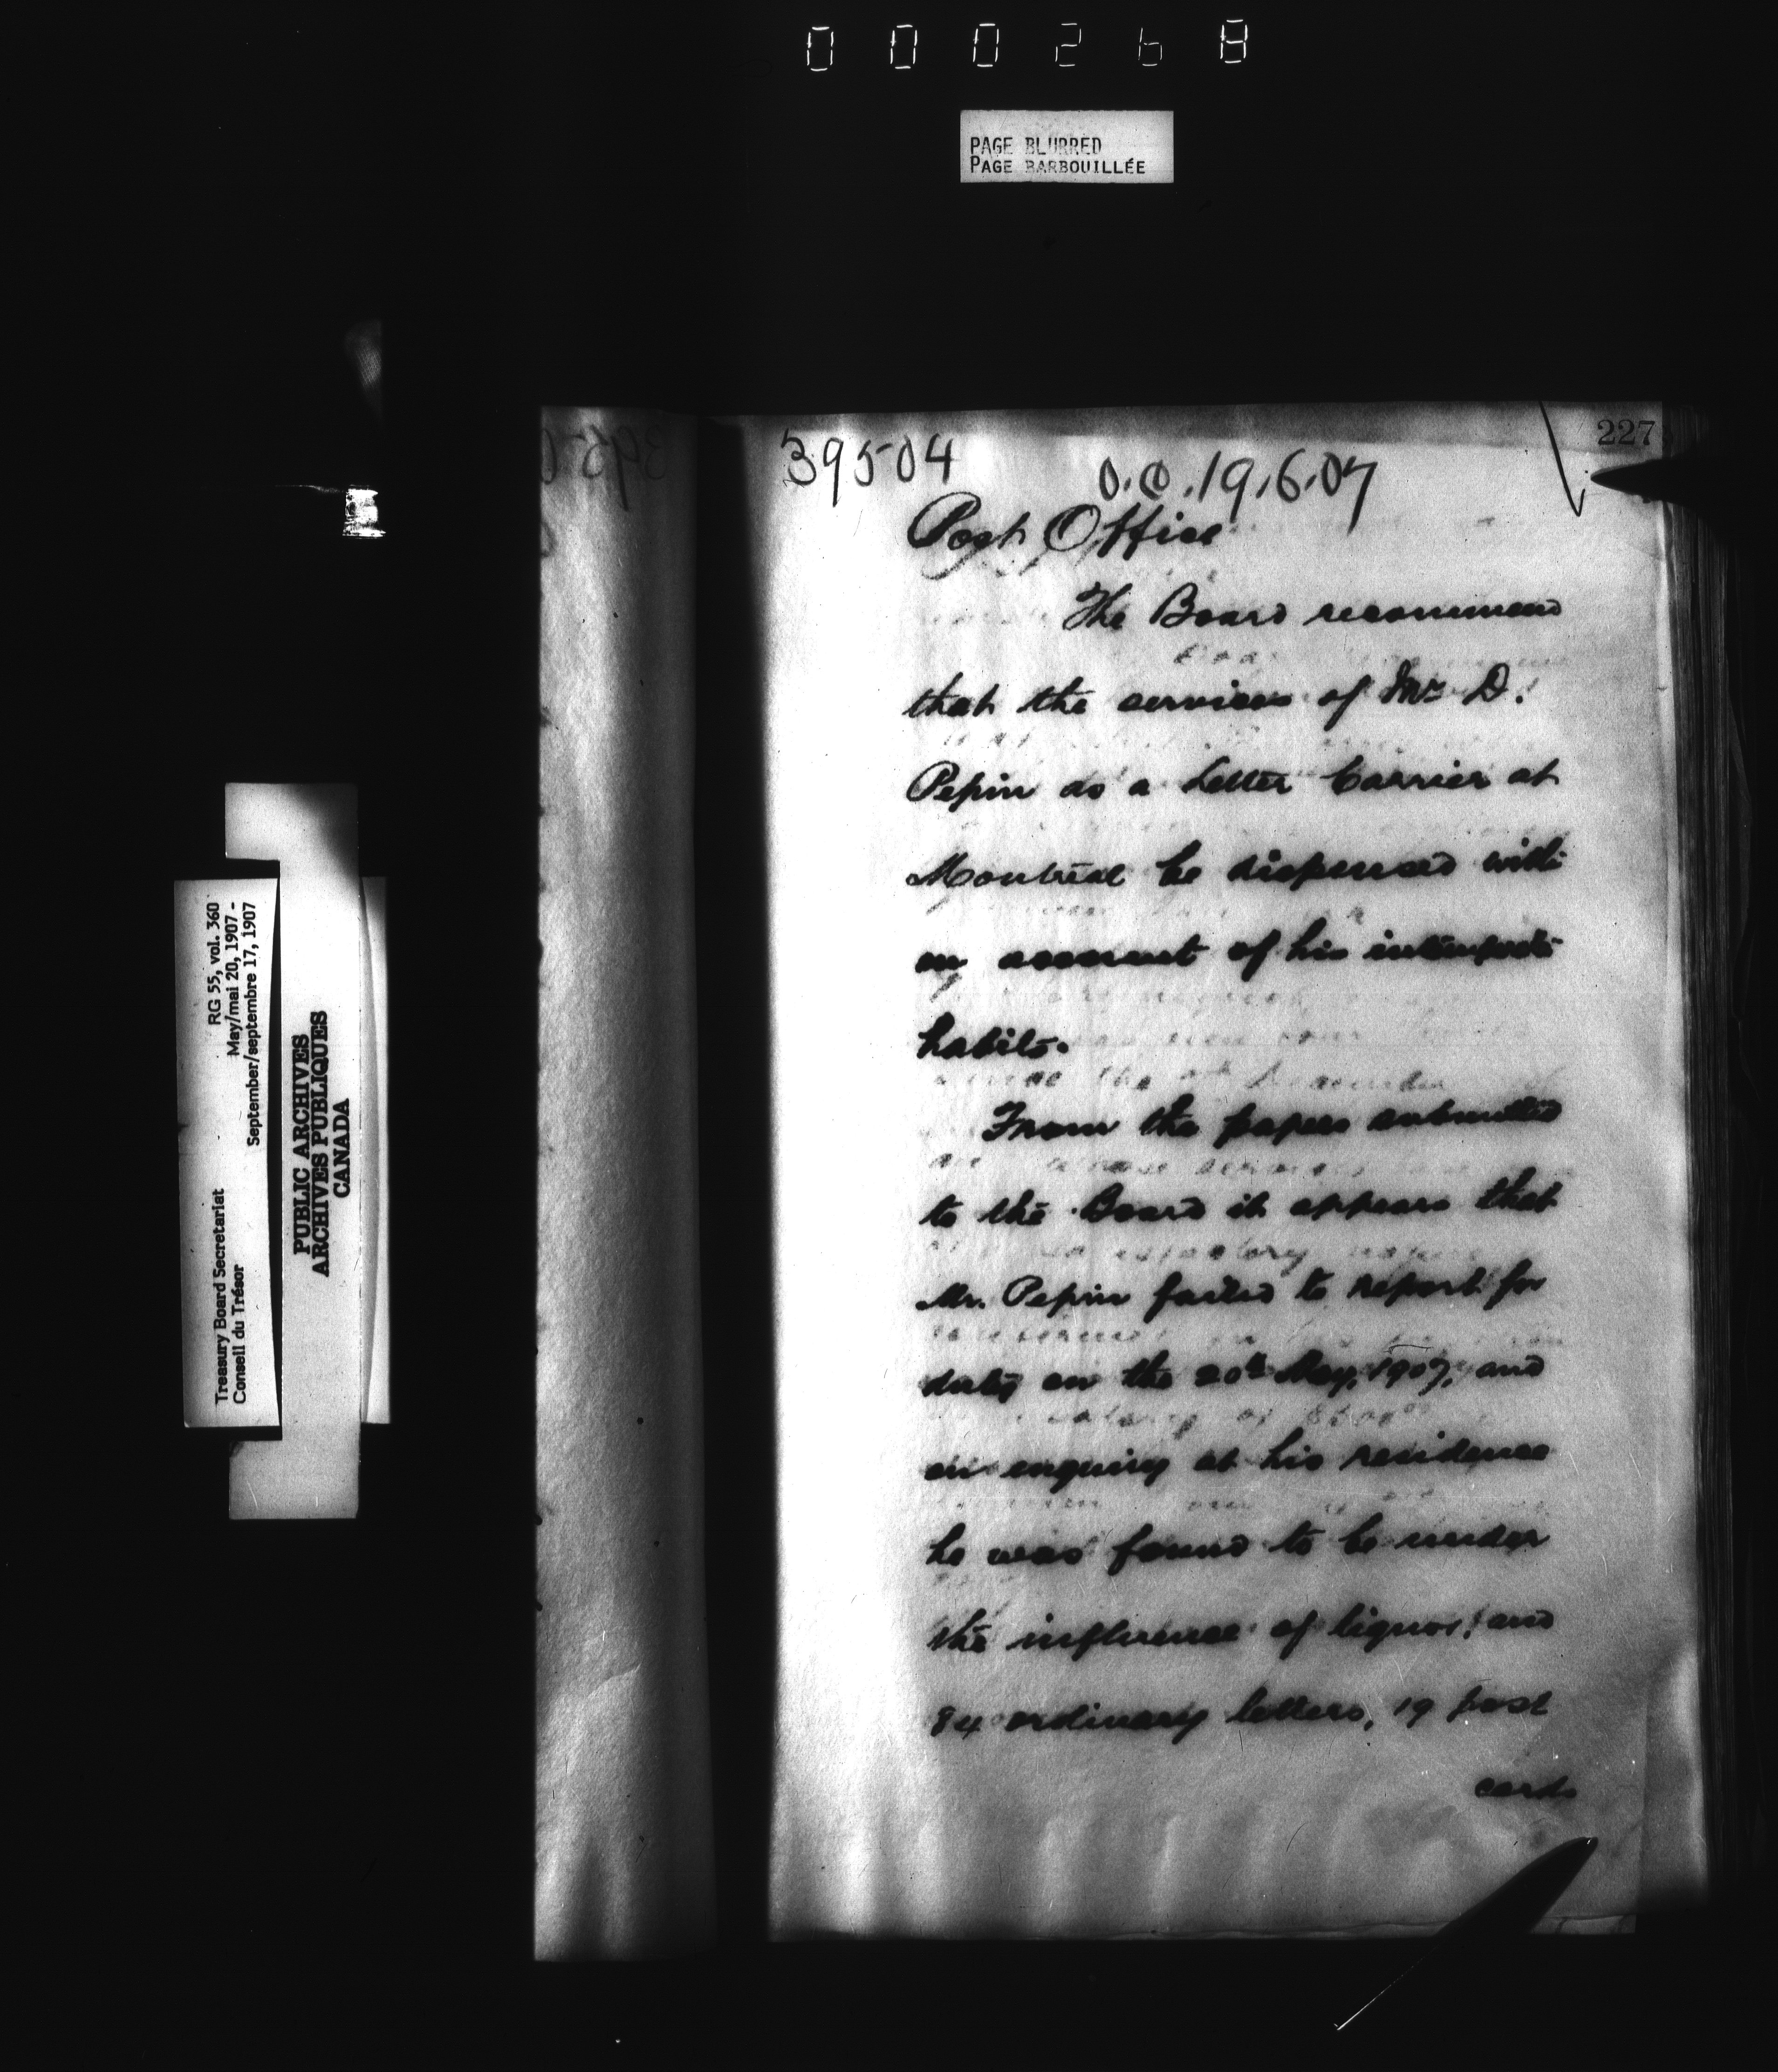 000268
PAGE BLURRED
PAGE BARBOUILLÉE
227
39504
O.C. 19.6.07
Post Office
The Board recommend
that the services of Mr. D.
Pepin as a Letter Carrier at
Montreal be dispensed with
on account of his
habits.
From the papers submitted
to the Board it appears that
Mr. Pepin failed to report for
duty on the 20th May, 1907, and
on enquiry at his residence
he was found to be under
the influence of liquor, and
84 ordinary letters, 19 post
cards
RG 55, vol. 360
May/mai 20, 1907 -
September/septembre 17, 1907
Treasury Board Secretariat
Conseil du Trésor
PUBLIC ARCHIVES
ARCHIVES PUBLIQUES
CANADA